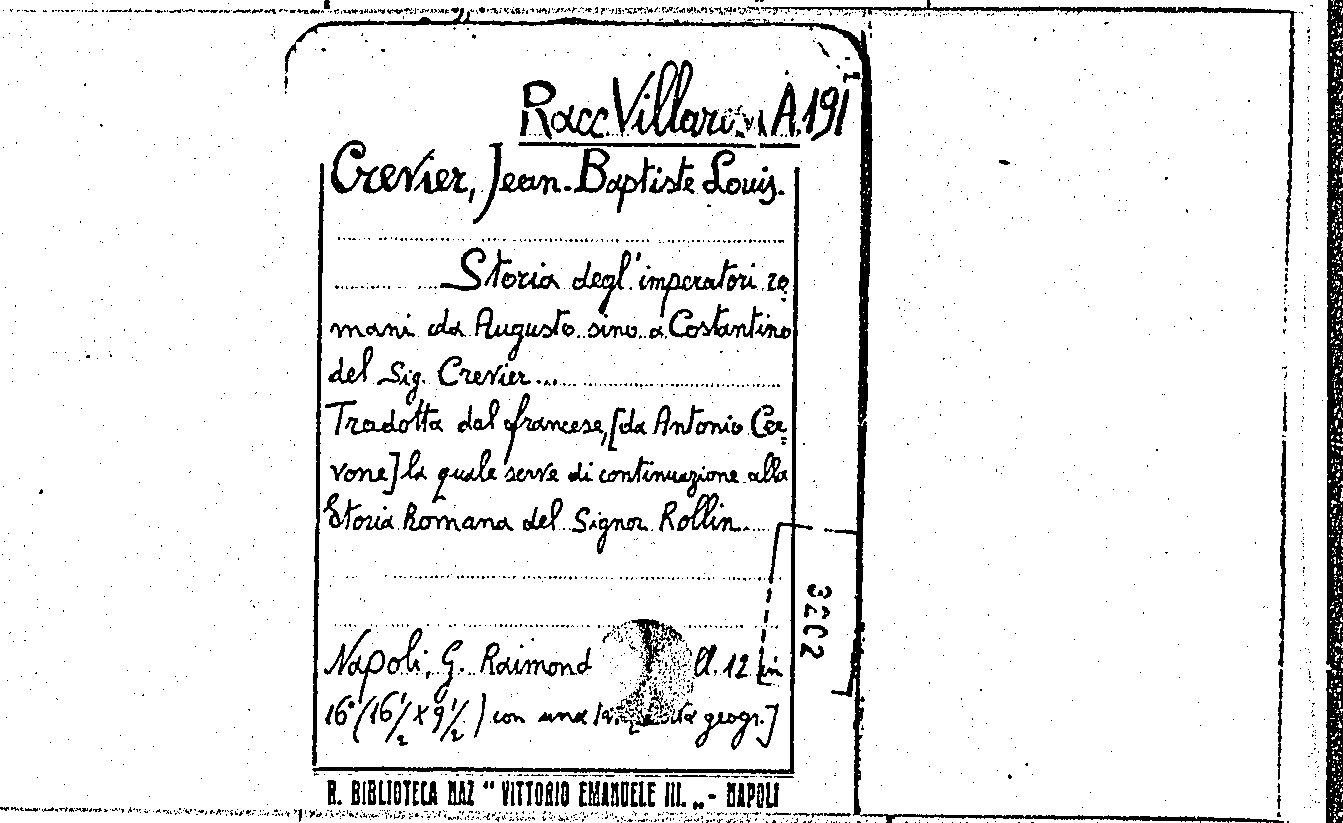 Racc. Villarosa A.191
Crevier, Jean-Baptiste Louis.
Storia degl'imperatori ro=
mani da Augusto sino a Costantino
del Sig. Crevier...
Tradotta dal francese, [da Antonio Cer=
vone] la quale serve di continuazione alla
Storia Romana del Signor Rollin...
Napoli, G. Raimond 12 in
16° (16 1/2 x 9 1/2) con una geogr.]
3202
R. BIBLIOTECA NAZ " VITTORIO EMANUELE III. „ - NAPOLI